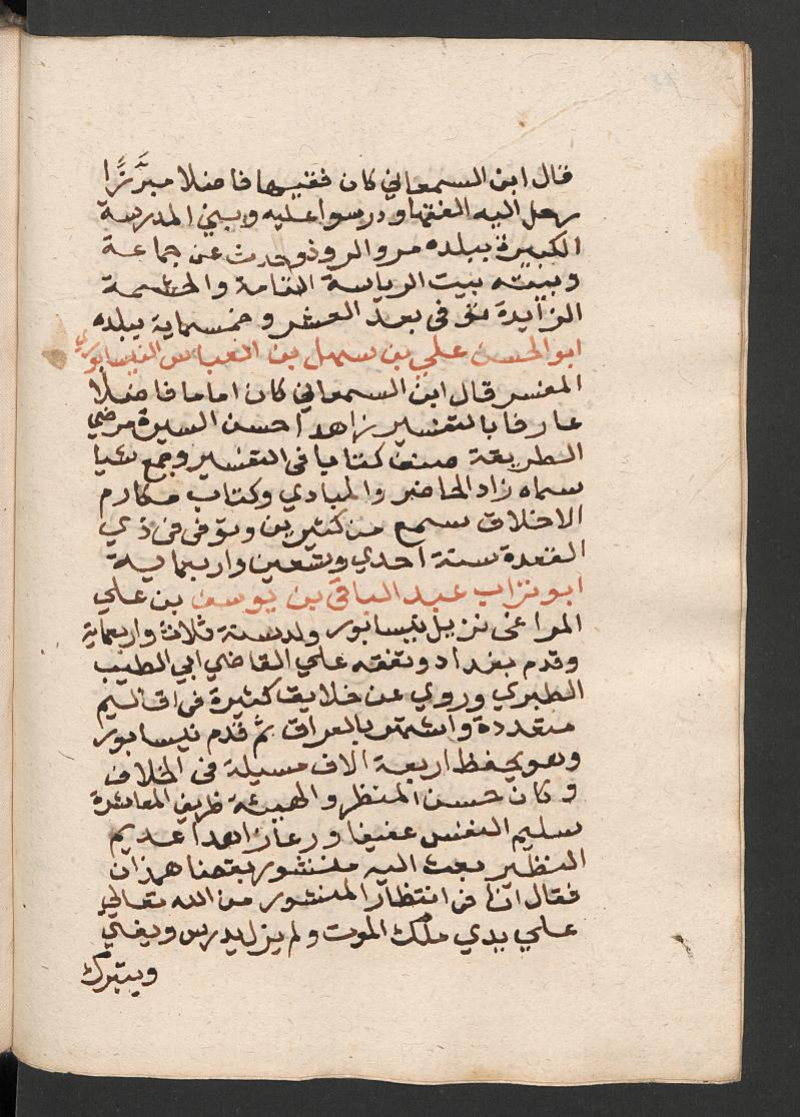 قال ابن السمعاني كان فقيها فاضلا مبرَّزًا
رحل اليه الفقها ودرسوا عليه وبني المدرسة
الكبيرة ببلده مرو الروذ وحدث عن جماعة
وبيته بيت الرياسة التامة والحشمة
الزايدة توفى بعد العشر وخمسماية ببلده
ابو الحسن علي بن سهل بن العباس النيسابوري
المفسر قال ابن السمعاني كان اماما فاضلا
عارفا بالتفسير زاهدا حسن السيرة مرضي
الطريقة صنف كتابا فى التفسير وجمع شيا
سماه زاد الحاضر والبادي وكتاب مكارم
الاخلاق سمع من كثيرين وتوفى فى ذي
القعدة سنة احدي وتسعين واربعماية
ابو تراب عبد الباقي بن يوسف بن علي
المراغى نزيل نيسابور ولد سنة ثلاث واربعماية
وقدم بغداد وتفقه علي القاضي ابي الطيب
الطبري وروي عن خلايق كثيرة فى اقاليم
متعددة واشتهر بالعراق ثم قدم نيسابور
وهو يحفظ اربعة الاف مسيلة فى الخلاف
وكان حسن المنظر والهيئة ظريف المعاشرة
سليم النفس عفيفا ورعا زاهدا عديم
النظير بعث اليه منشور بقضا همذان
فقال انا فى انتظار المنشور من الله تعالي
علي يدي ملك الموت ولم يزل يدرس ويفتي
ويتبرك